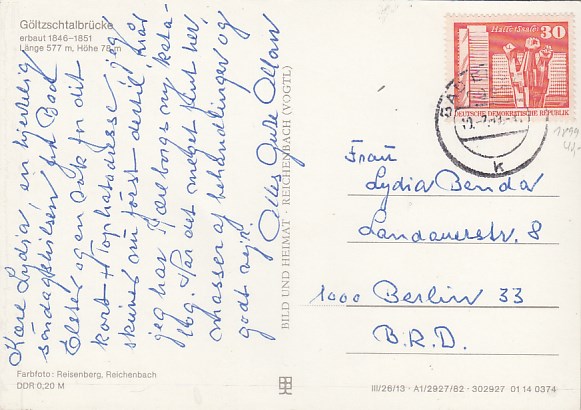 Göltzschtalbrücke
erbaut 1846–1851
Länge 577 m, Höhe 78 m
Kære Lydia, en hjertelig
søndagshilsen fra Bad
Elster og en tak for dit
kort + Tophatadresse jeg
skrives nu først dertil, når
jeg har Færeborgs ny kata-
log. Har det meget flot her
masser af behandlinger og
godt vejr.
Alles Gute Allan
BILD UND HEIMAT · REICHENBACH (VOGTL)
Farbfoto: Reisenberg, Reichenbach
DDR 0,20 M
Halle-Neustadt
30
DEUTSCHE DEMOKRATISCHE REPUBLIK
BAD
k
Frau
Lydia Benda
Landauerstr. 8
1000 Berlin 33
B.R.D.
III/26/13 · A1/2927/82 · 302927 01 14 0374